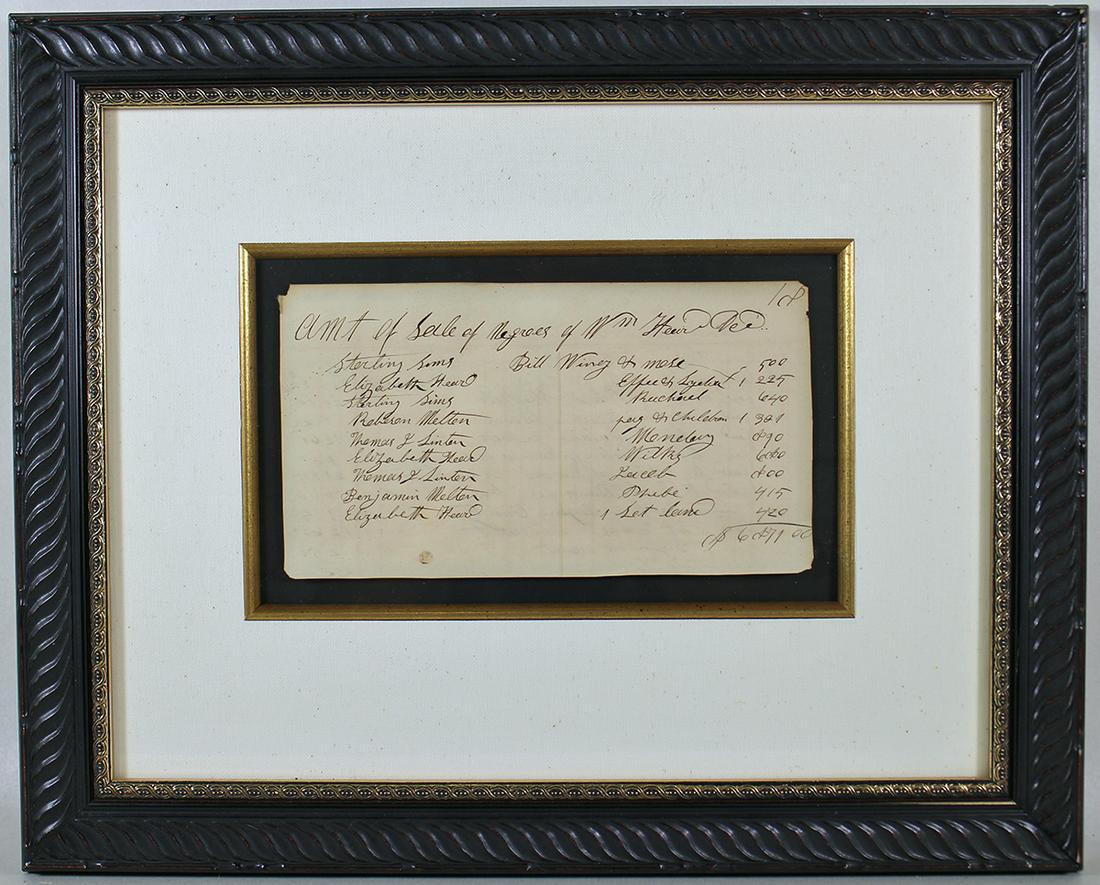 18
Amt of Sale of Negroes of Wm Heard Dec.
Sterling Sims Bill Winey & mose 500
Elizabeth Heard Effee & Lydia 1 225
Sterling Sims Rachael 640
Roberson Melton peg & Children 1 321
Thomas J Linton 890
Elizabeth Heard 660
Thomas J Linton Jacob 800
Benjamin Melton Phebe 415
Elizabeth Heard 1 Lot land 420
$6871 00